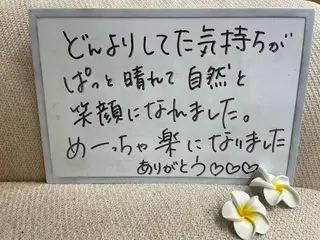 どんよりしてた気持ちが
ぱっと晴れて自然と
笑顔になれました。
めーっちゃ楽になりました
ありがとう♡♡♡